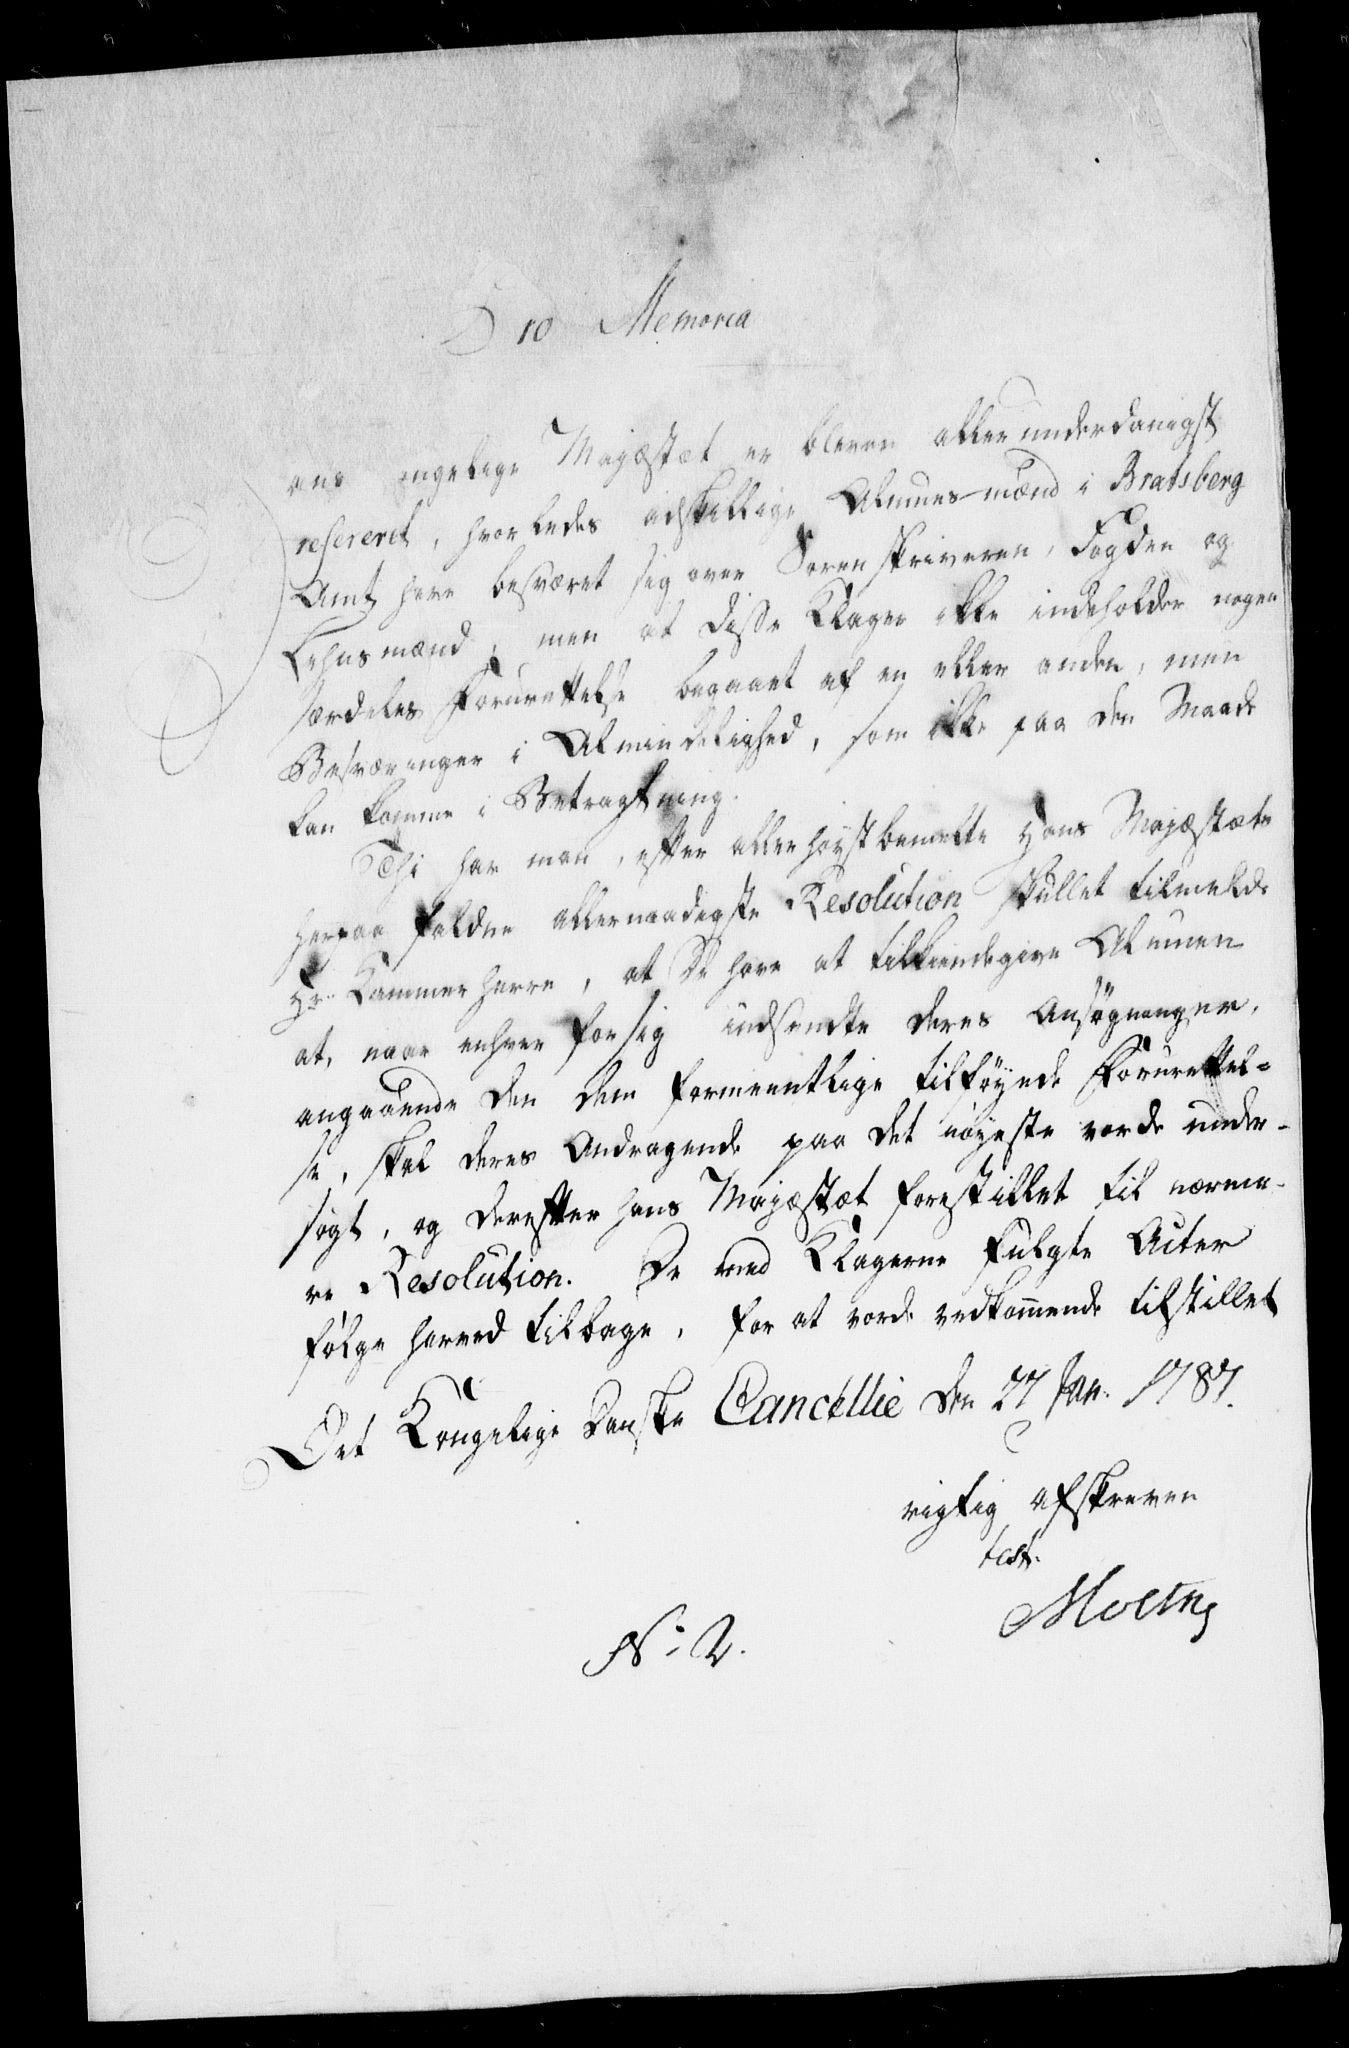 Pro Memoria
Hans Kongelige Majæstæt er bleven allerunderdanigst
refereret, hvorledes adskillige Almues-mænd i Bratsberg
Amt have besværet sig over Sorenskriveren, Fogden og
Lehnsmænd, men at disse Klager ikke indeholder nogen
særdeles Forurettelse begaaet af en eller anden, men
Besværinger i Almindelighed, som ikke paa den Maade
kan komme i Betragtning.
Thi har man, efter allerhøystbemelte Hans Majæstæts
herpaa faldne allernaadigste Resolution skullet tilmelde
Hr. Kammerherre, at De have at tilkiendegive Almuen
at, naar enhver for sig indsendte deres Ansøgninger,
angaaende den dem formeentlige tilføyede Forurettel-
se, skal deres Andragende paa det nøyeste vorde under-
søgt, og derefter hans Majæstæt forestillet til nærme-
re Resolution. De med Klagerne fulgte Acter
følge herved tilbage, for at vorde vedkommende tilstillet
Det Kongelige Danske Cancellie den 27 Jan. 1787.
rigtig afskreven
test.
No 2.